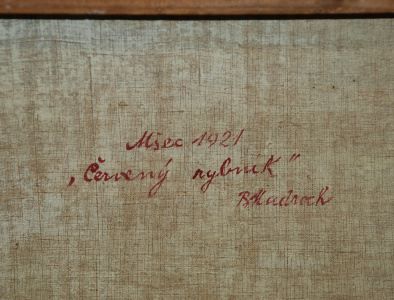 Mšec 1921
„Červený rybník"
B. Kudrock